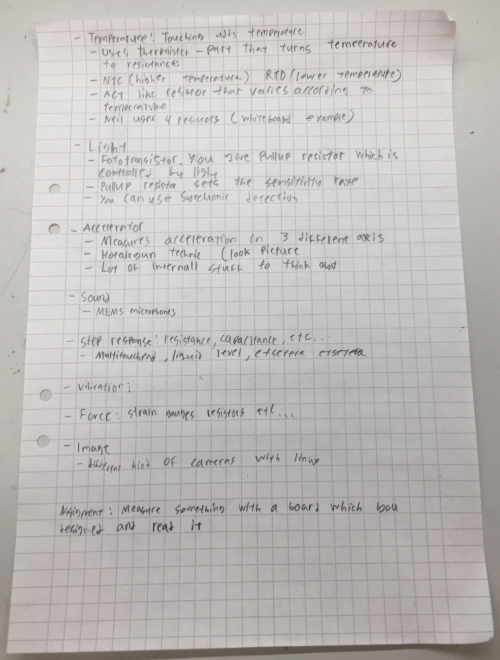 - Temperature: Touching adds temperature
- Uses thermister - Part that turns temeerature
to resistance
- NTC (higher temperature) RTD (lower temperate)
- Act like resistor that varies according to
temperature
- Neil uses 4 resistors (whiteboard example)
- Light
- Fototransistor. You give Pullup resistor which is
controlled by
- Pullup resistor sets the sensitivity
- You can use Synchronic detection
- Accelerator
- Measures acceleration in 3 different axis
- technic (look Picture
- Lot of internall stuff to think about
- Sound
- MEMS microphones
- Step response: resistance, capacitance, etc...
- , liquid level, etsetera etsetera
- Vibration:
- Force: strain gauges resistors etc...
- Image
- different kind of cameras with linux
Assignment: Measure something with a board which
designed and read it